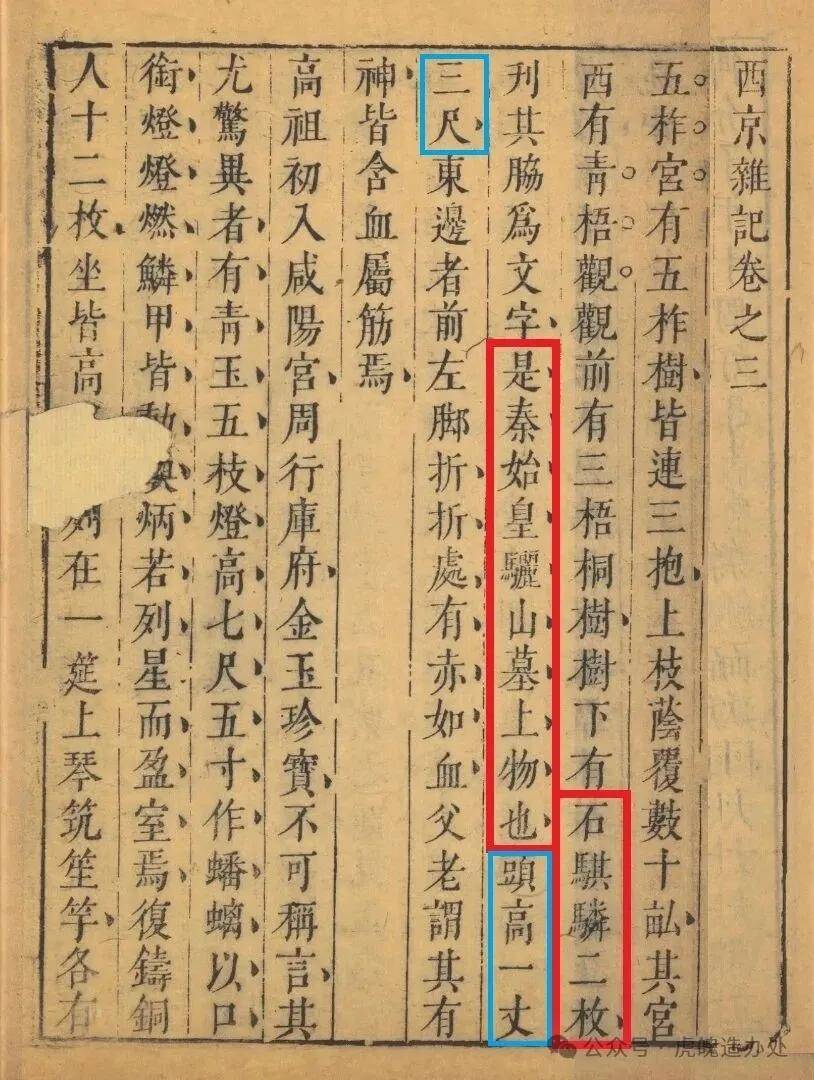 西京雜記卷之三
五柞宮有五柞樹皆連三抱上枝蔭覆數十畝其宮
西有青梧觀觀前有三梧桐樹樹下有石騏驎二枚
刋其脇爲文字是秦始皇驪山墓上物也頭高一丈
三尺東邊者前左脚折折處有赤如血父老謂其有
神皆含血屬筋焉
高祖初入咸陽宮周行庫府金玉珍寶不可稱言其
尤驚異者有青玉五枝燈高七尺五寸作蟠螭以口
銜燈燈燃鱗甲皆動炳若列星而盈室焉復鑄銅
人十二枚坐皆高列在一筵上琴筑笙竽各有
公众号·虎魄造办处